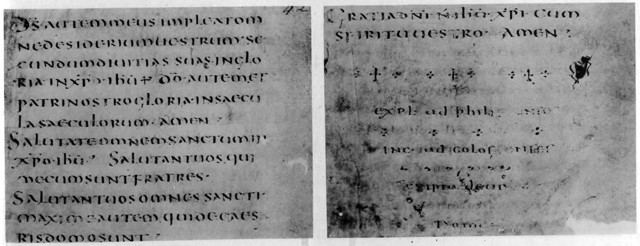 42
D̄S AUTEM MEUS IMPLEAT OM
NE DESIDERIUM UESTRUM SE
CUNDUM DIUITIAS SUAS IN GLO
RIA IN XP̄O IHŪ D̄O AUTEM ET
PATRI NOSTRO GLORIA IN SAECU
LA SAECULORUM · AMEN ·
SALUTATE OMNEM SANCTUM IN
XP̄O IHŪ · SALUTANT UOS QUI
MECUM SUNT FRATRES ·
SALUTANT UOS OMNES SANCTI
MAXIME AUTEM QUI DE CAES
RIS DOMO SUNT ·
GRATIA DN̄I N̄ IHŪ XP̄I CUM
SPIRITU UESTRO · AMEN :
expl · ad phil
inc · ad colos